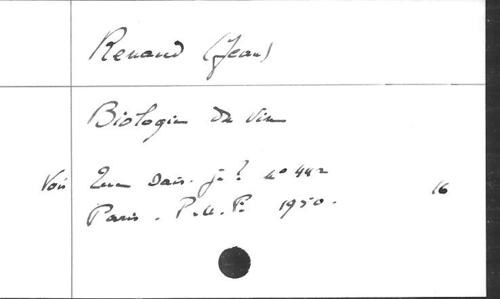 Renaud (Jean)
Biologie du vin
Voir Que sais-je? n° 442
Paris. P.U.F. 1950.
16